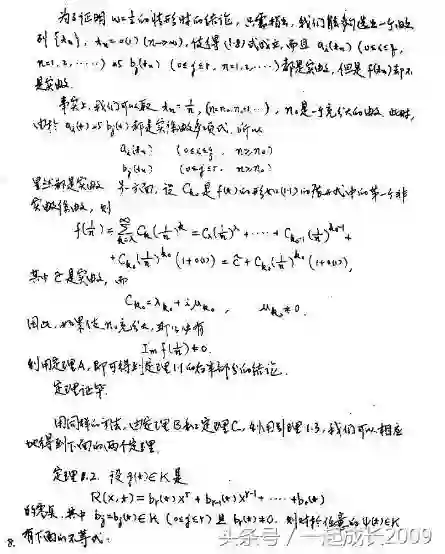 为了证明 ω=½ 的情形时的结论，只需指出，我们能够造出一个数
列 {xₙ}，xₙ=o(1) (n→∞)，使得(1.8)式成立，而且 aᵢ(xₙ) (0≤i≤q,
n=1,2,……) 与 bⱼ(xₙ) (0≤j≤r, n=1,2,……) 都是实数，但是 f(xₙ) 却不
是实数。
事实上，我们可以取 xₙ=1/n, (n=n₀,n₀+1,…)，n₀是一个充分大的数。此时，
由于 aᵢ(x) 与 bⱼ(x) 都是实系数多项式，所以
aᵢ(xₙ) (0≤i≤q, n≥n₀)
bⱼ(xₙ) (0≤j≤r, n≥n₀)
显然都是实数。另一方面，设 Cₖ₀ 是 f(x) 的形如(1.1)的展开式中的第一个非
实数系数，则
f(1/n)=∑ₖ₌λ^∞ Cₖ(1/n)ᵏ = C_λ(1/n)^λ+⋯+Cₖ₀₋₁(1/n)^(k₀-1)+
+Cₖ₀(1/n)^k₀(1+o(1))=Ĉ+Cₖ₀(1/n)^k₀(1+o(1)),
其中 Ĉ 是实数，而
Cₖ₀=λₖ₀+iμₖ₀, μₖ₀≠0.
因此，如果使 n₀ 充分大，即有
Im f(1/n)≠0.
利用定理A，即可得到定理1.1的后半部分的结论。
定理证毕.
用同样的方法，由定理B和定理C，利用引理1.3，我们可以相应
地得到下面的两个定理.
定理1.2. 设 φ(x)∈K 是
R(x,y)=bᵣ(x)yʳ+bᵣ₋₁(x)yʳ⁻¹+⋯+b₀(x)
的零点，其中 bⱼ=bⱼ(x)∈K (0≤j≤r) 且 bᵣ(x)≠0. 则对于任意的 ψ(x)∈K
有下面的不等式：
8.
头条号 / 一起成长2009